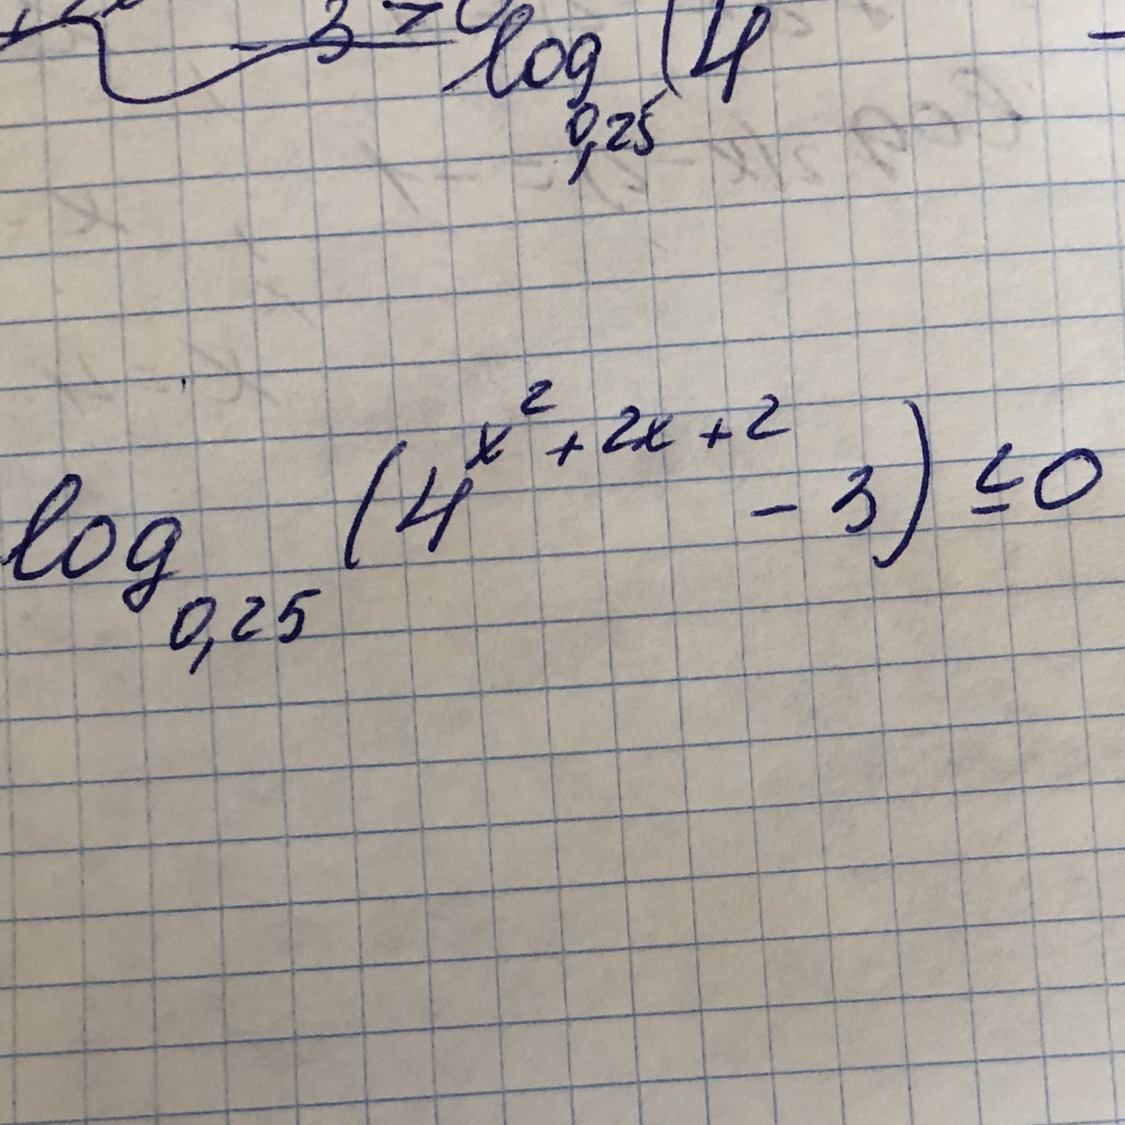 - 3 > 0 log_{0,25} (4 -
log_{0,25} (4^{x^2 + 2x + 2} - 3) ≤ 0